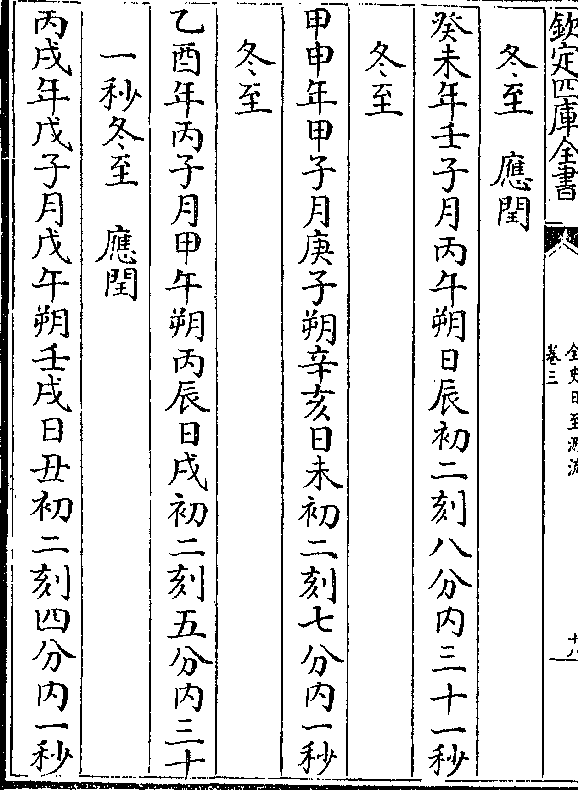 欽定四庫全書
全史日至源流
卷三
十八
冬至　應閏
癸未年壬子月丙午朔日辰初二刻八分内三十一秒
冬至
甲申年甲子月庚子朔辛亥日未初二刻七分内一秒
冬至
乙酉年丙子月甲午朔丙辰日戌初二刻五分内三十
一秒冬至　應閏
丙戌年戊子月戊午朔壬戌日丑初二刻四分内一秒